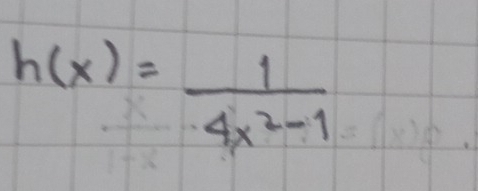 h(x) = 1/(4x²-1)